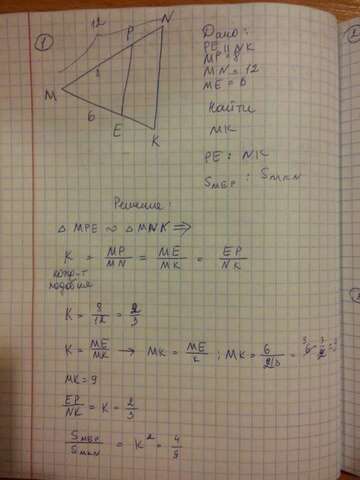 1
12
N
P
8
M
6
E
K
Дано:
PE || NK
MP = 8
MN = 12
ME = 6
Найти
MK
PE : NK
S MEP : S MKN
Решение:
△ MPE ∾ △ MNK ⇒
K = MP/MN = ME/MK = EP/NK
подобия
K = 8/12 = 2/3
K = ME/MK → MK = ME/K ; MK = 6/2/3 =
MK = 9
EP/NK = K = 2/3
S MEP/S MKN = K² = 4/9